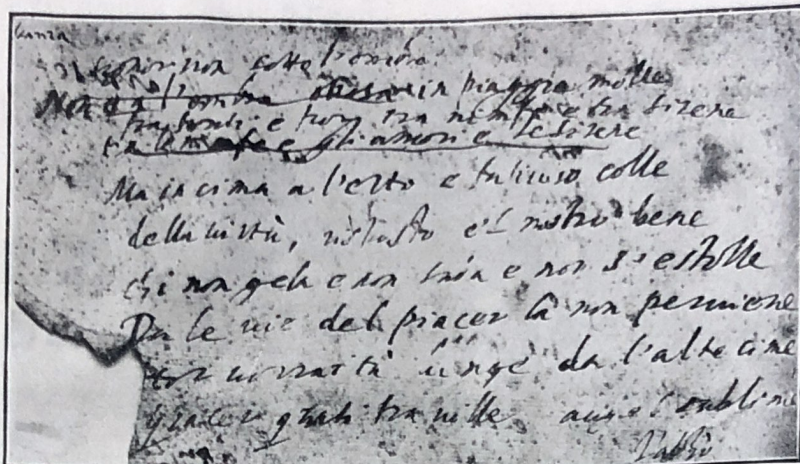 Stanza
Signor non sotto l'ombra
Non l'ombra in piaggia molle
tra fonti e fior tra ninfe e tra sirene
tra le ninfe e gli amori e le sirene
Ma in cima a l'erto e faticoso colle
della virtù, riposto è 'l nostro bene
chi non gela e non suda e non s'estolle
Da le vie del piacer là non perviene
Hor vorrai tu lunge da l'alte cime
giacer quasi tra valle augel sublime